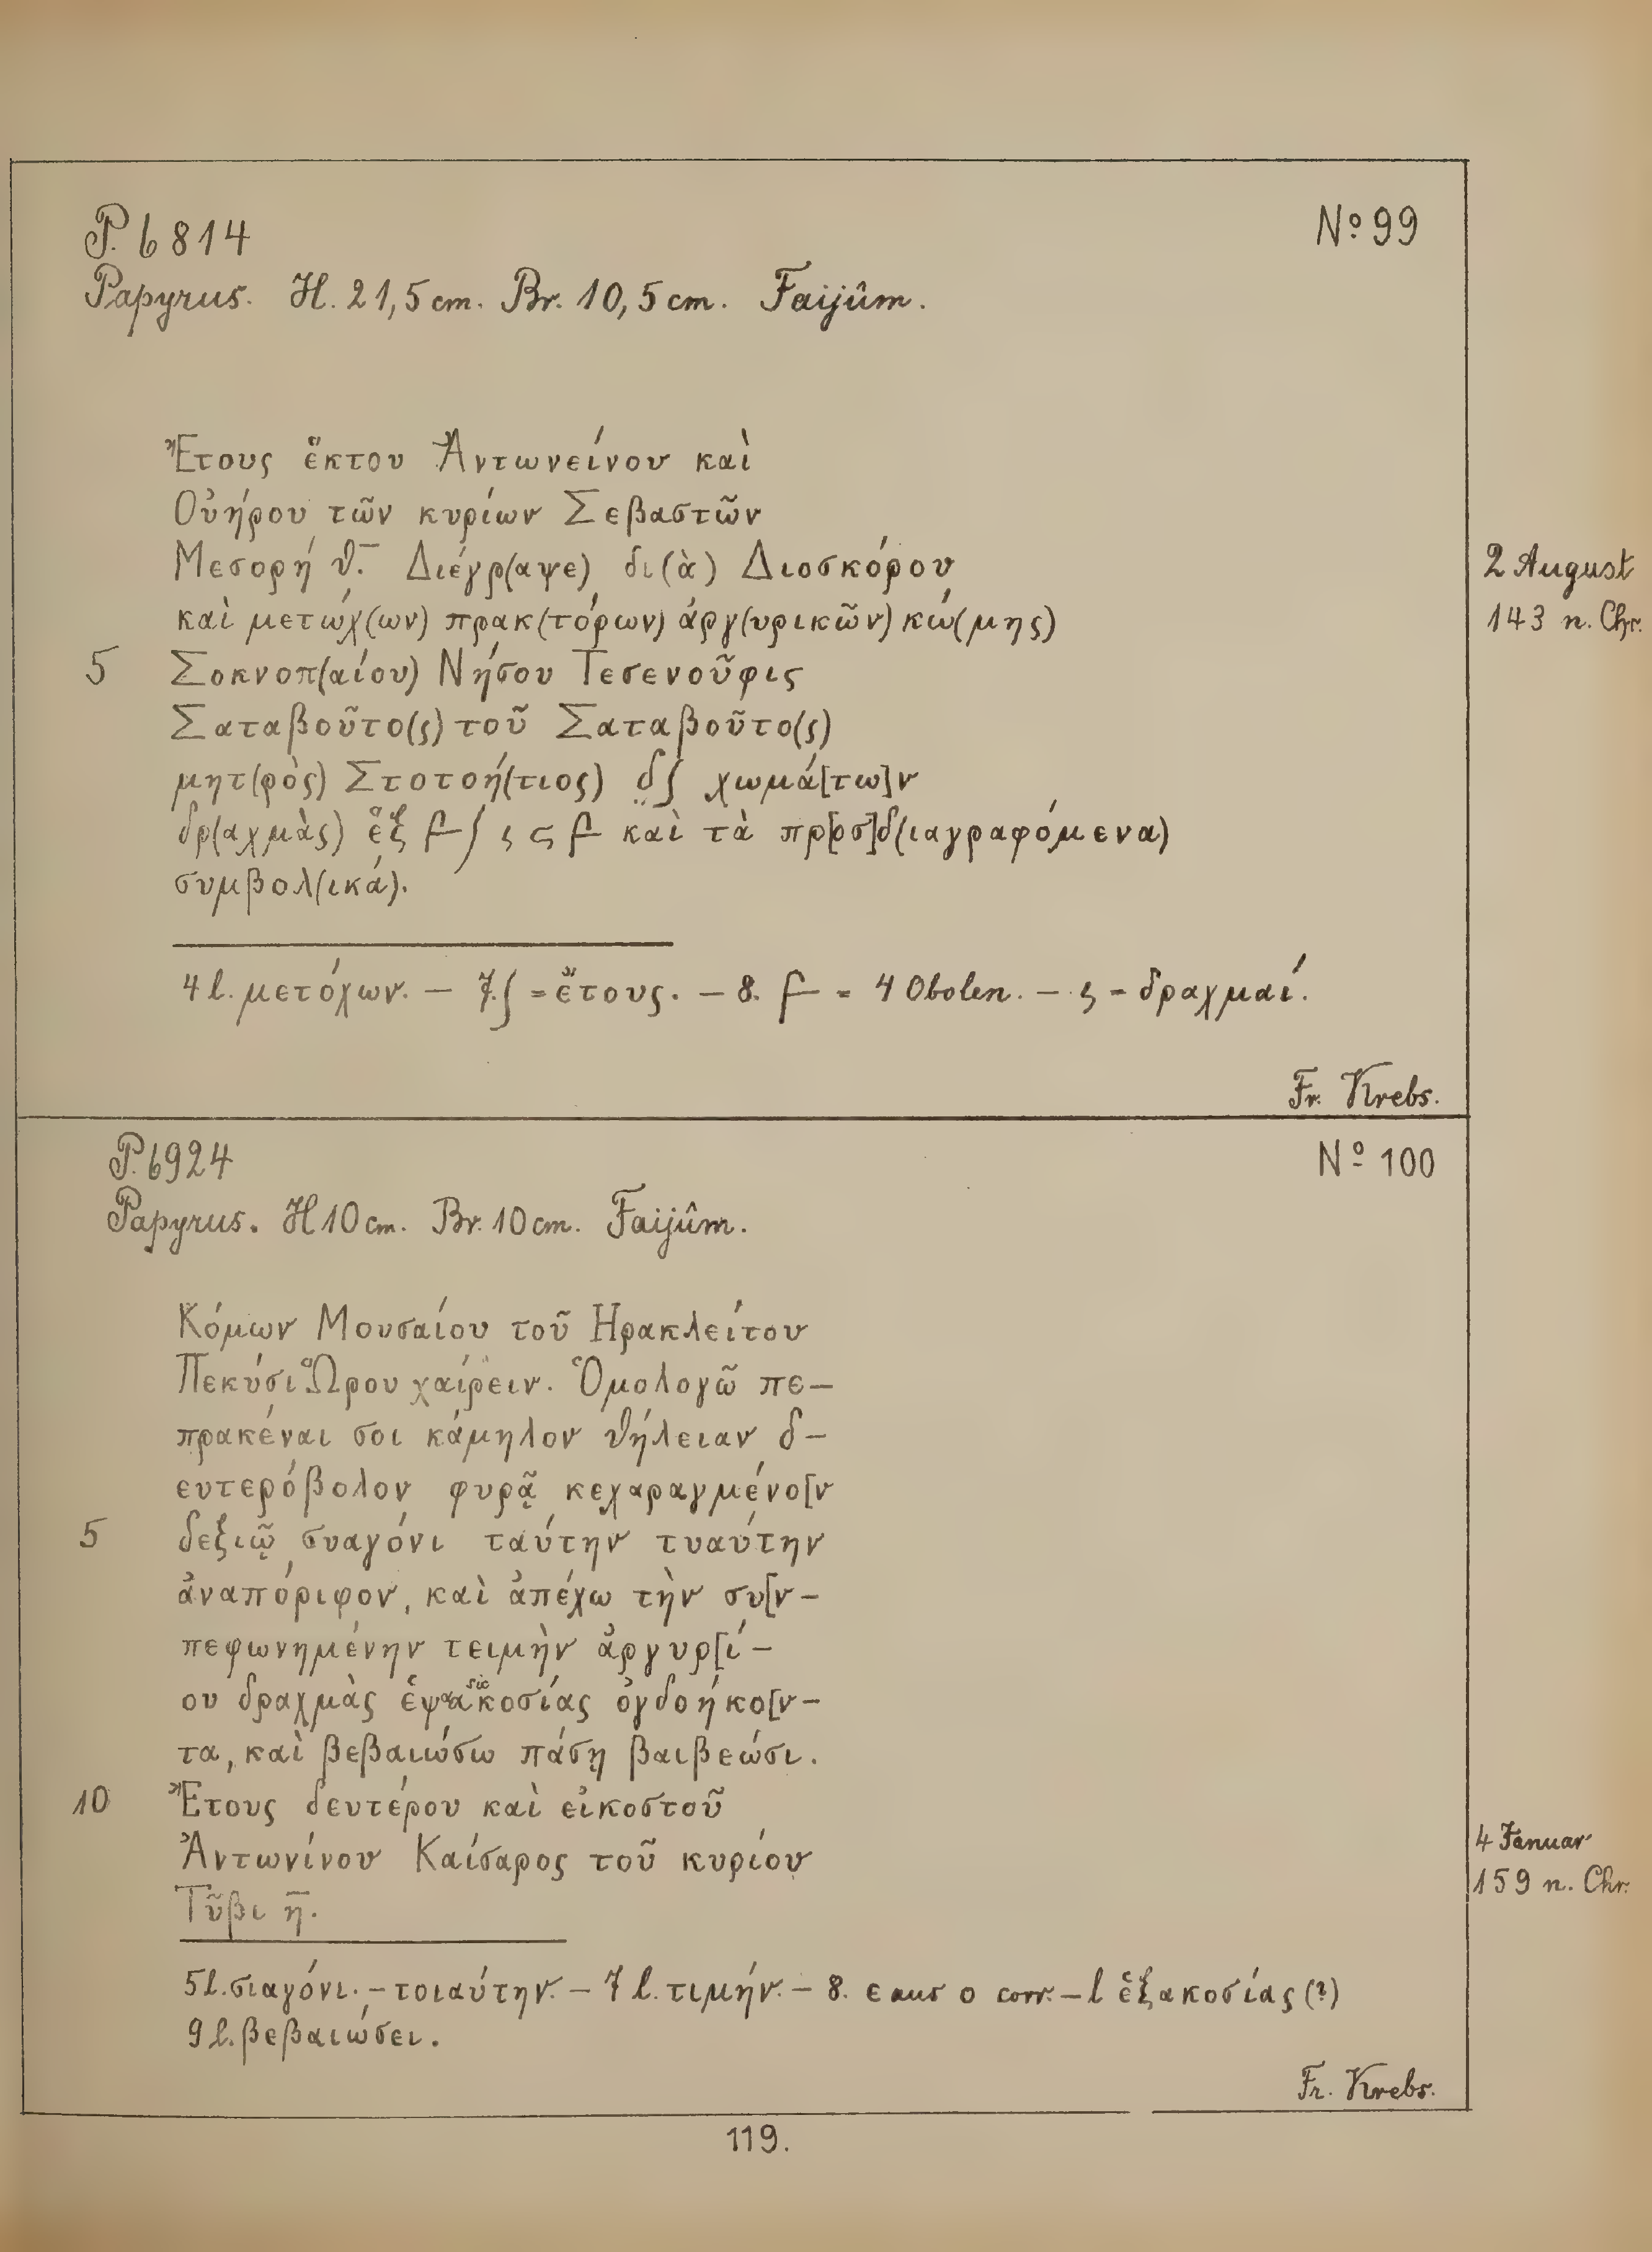 P. 6814
No 99
Papyrus. H. 21,5 cm. Br. 10,5 cm. Faijûm.
Ἔτους ἕκτου Ἀντωνείνου καὶ
Οὐήρου τῶν κυρίων Σεβαστῶν
Μεσορή θ̅. Διέγρ(αψε) δι(ὰ) Διοσκόρου
2 August
καὶ μετώχ(ων) πρακ(τόρων) ἀργ(υρικῶν) κώ(μης)
143 n. Chr.
5 Σοκνοπ(αίου) Νήσου Τεσενοῦφις
Σαταβοῦτο(ς) τοῦ Σαταβοῦτο(ς)
μητ(ρὸς) Στοτοή(τιος) δ∫ χωμά[τω]ν
δρ(αχμὰς) ἓξ καὶ τὰ πρ[οσ]δ(ιαγραφόμενα)
συμβολ(ικά).
4 l. μετόχων. — 7. ∫ = ἔτους. — 8. = 4 Obolen. — = δραχμαί.
Fr. Krebs.
P. 6924
No 100
Papyrus. H 10 cm. Br. 10 cm. Faijûm.
Κόμων Μουσαίου τοῦ Ηρακλείτου
Πεκύσι Ὥρου χαίρειν. Ὁμολογῶ πε-
πρακέναι σοι κάμηλον θήλειαν δ-
ευτερόβολον φυρᾷ κεχαραγμένο[ν
5 δεξιῷ συαγόνι ταύτην τυαύτην
ἀναπόριφον, καὶ ἀπέχω τὴν συ[ν-
πεφωνημένην τειμὴν ἀργυρ[ί-
ου δραχμὰς ὀγδοήκο[ν-
τα, καὶ βεβαιώσω πάσῃ βαιβεώσι.
10 Ἔτους δευτέρου καὶ εἰκοστοῦ
Ἀντωνίνου Καίσαρος τοῦ κυρίου
4 Januar
159 n. Chr.
Τῦβι η̅.
5 l. σιαγόνι. — τοιαύτην. — 7 l. τιμήν. — 8. ε aus ο corr. — l ἑξακοσίας (?)
9 l. βεβαιώσει.
Fr. Krebs.
119.